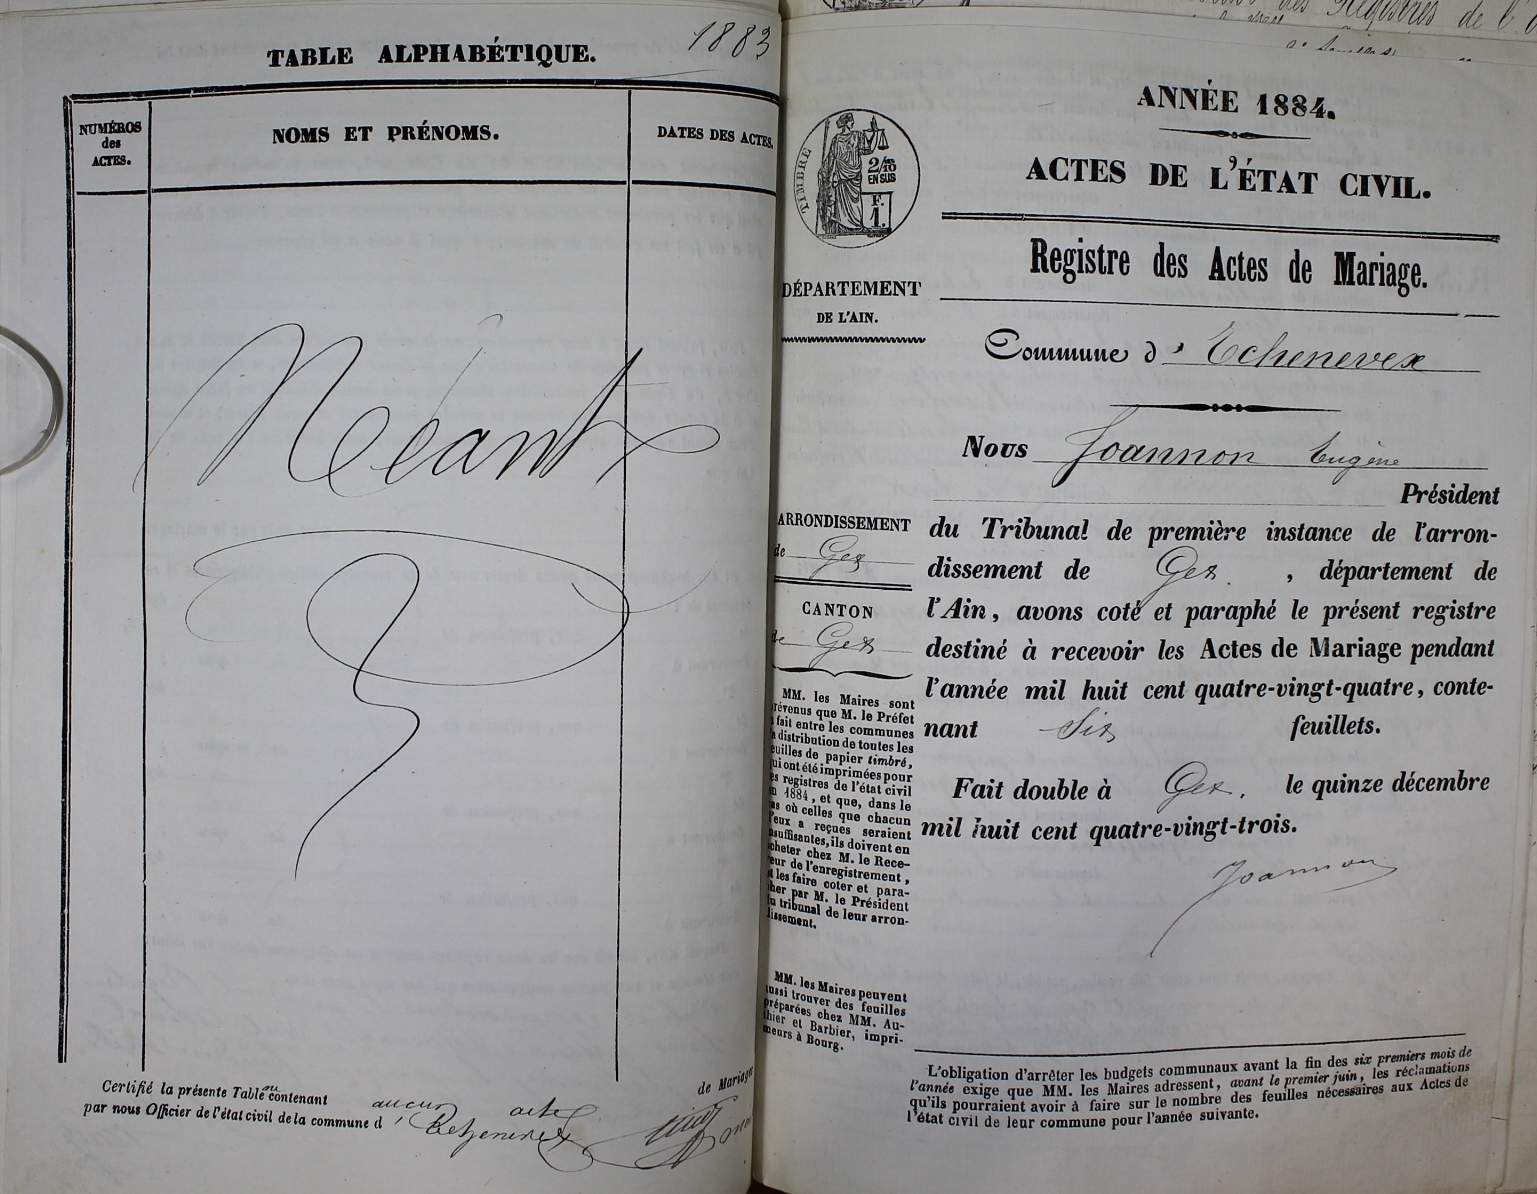 1883
TABLE ALPHABÉTIQUE.
NUMÉROS
des
ACTES.
NOMS ET PRÉNOMS.
DATES DES ACTES.
Néant
Certifié la présente Table contenant aucun acte de Mariage
par nous Officier de l'état civil de la commune d' Echenevex
ANNÉE 1884.
ACTES DE L'ÉTAT CIVIL.
Registre des Actes de Mariage.
Commune d' Echenevex
TIMBRE
2/10
EN SUS
F.
1.
DÉPARTEMENT
DE L'AIN.
ARRONDISSEMENT
de Gex
CANTON
de Gex
MM. les Maires sont
révenus que M. le Préfet
fait entre les communes
a distribution de toutes les
euilles de papier timbré,
ui ont été imprimées pour
es registres de l'état civil
n 1884, et que, dans le
as où celles que chacun
'eux a reçues seraient
suffisantes, ils doivent en
cheter chez M. le Rece-
eur de l'enregistrement,
t les faire coter et para-
her par M. le Président
u tribunal de leur arron-
issement.
MM. les Maires peuvent
ussi trouver des feuilles
préparées chez MM. Au-
hier et Barbier, impri-
meurs à Bourg.
Nous Joannon Eugène
Président
du Tribunal de première instance de l'arron-
dissement de Gex. , département de
l'Ain, avons coté et paraphé le présent registre
destiné à recevoir les Actes de Mariage pendant
l'année mil huit cent quatre-vingt-quatre, conte-
nant Six feuillets.
Fait double à Gex. le quinze décembre
mil huit cent quatre-vingt-trois.
Joannon
L'obligation d'arrêter les budgets communaux avant la fin des six premiers mois de
l'année exige que MM. les Maires adressent, avant le premier juin, les réclamations
qu'ils pourraient avoir à faire sur le nombre des feuilles nécessaires aux Actes de
l'état civil de leur commune pour l'année suivante.